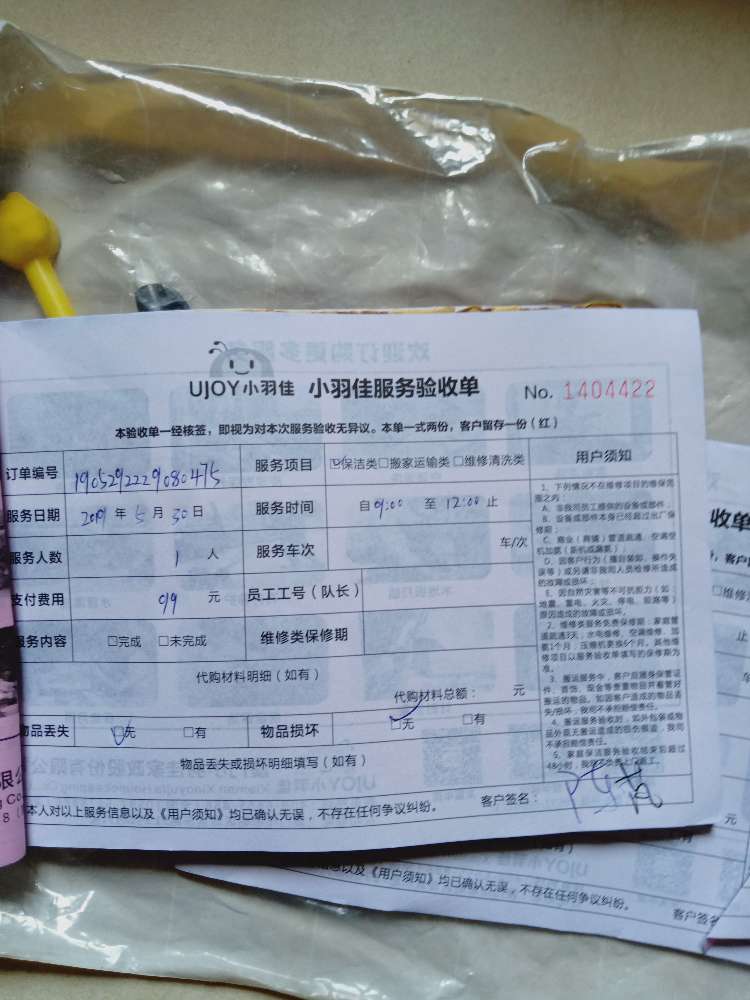 UJOY小羽佳 小羽佳服务验收单 No. 1404422
本验收单一经核签，即视为对本次服务验收无异议。本单一式两份，客户留存一份（红）
订单编号 1905292229080475 服务项目 ☑保洁类□搬家运输类□维修清洗类 用户须知
服务日期 2019 年 5 月 30 日 服务时间 自 9:00 至 12:00 止
服务人数 1 人 服务车次 车/次
支付费用 99 元 员工工号（队长）
服务内容 □完成 □未完成 维修类保修期
代购材料明细（如有）
代购材料总额： 元
物品丢失 ☑无 □有 物品损坏 ☑无 □有
物品丢失或损坏明细填写（如有）
本人对以上服务信息以及《用户须知》均已确认无误，不存在任何争议纠纷。 客户签名：
1、下列情况不在维修项目的维保范
围之内：
A、非我司员工提供的设备或部件；
B、设备或部件本身已经超过出厂保
修期；
C、商业（商铺）管道疏通、空调空
机加氟（新机或漏氟）；
D、因客户行为（擅自装卸、操作失
误等）或另请非我司人员维修所造成
的故障或损坏；
E、因自然灾害等不可抗拒力（如：
地震、雷电、火灾、停电、短路等）
原因造成的故障或损坏。
2、维修类服务免费保修期：家庭管
道疏通3天；水电维修、空调维修、加
氟1个月；压缩机更换6个月。其他维
修项目以服务验收单填写的保修期为
准。
3、搬运服务中，客户应随身保管证
件、首饰、现金等贵重物品并看管好
搬运的物品。如因客户造成的物品丢
失/损坏，我司不承担赔偿责任。
4、搬运服务验收时，如外包装或物
品外面无搬运造成的损伤痕迹，我司
不承担赔偿责任。
5、家庭保洁服务验收结束后超过
48小时，
收单
□维修清
止
元
以及《用户须知》均已确认无误，不存在任何争议纠纷。
客户签名